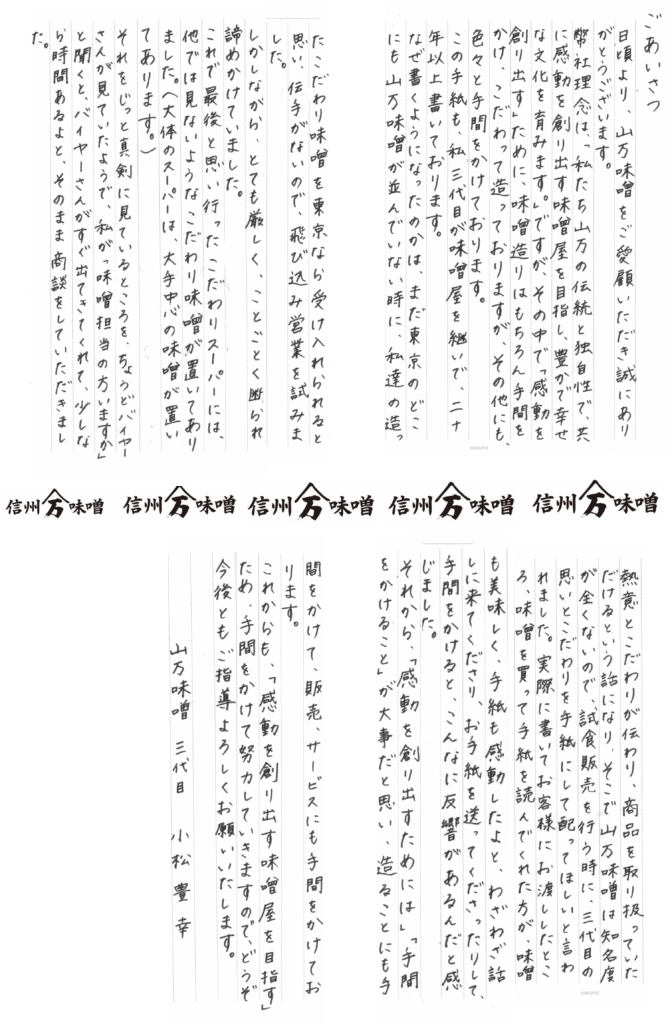 ごあいさつ
日頃より、山万味噌をご愛顧いただき誠にあり
がとうございます。
弊社理念は「私たち山万の伝統と独自性で、共
に感動を創り出す味噌屋を目指し、豊かで幸せ
な文化を育みます。」ですが、その中で「感動を
創り出す」ために、味噌造りはもちろん手間を
かけ、こだわって造っておりますが、その他にも、
色々と手間をかけております。
この手紙も、私三代目が味噌屋を継いで、二十
年以上書いております。
なぜ書くようになったのかは、まだ東京のどこ
にも山万味噌が並んでいない時に、私達の造っ
たこだわり味噌を東京なら受け入れられると
思い、伝手がないので、飛び込み営業を試みま
した。
しかしながら、とても厳しく、ことごとく断られ
諦めかけていました。
これで最後と思い行ったこだわりスーパーには、
他では見ないようなこだわり味噌が置いてあり
ました。(大体のスーパーは、大手中心の味噌が置い
てあります。)
それをじっと真剣に見ているところを、ちょうどバイヤー
さんが見ていたようで、私が「味噌担当の方いますか」
と聞くと、バイヤーさんがすぐ出てきてくれて、少しな
ら時間あるよと、そのまま商談をしていただきまし
た。
信州 万 味噌
信州 万 味噌
信州 万 味噌
信州 万 味噌
信州 万 味噌
熱意とこだわりが伝わり、商品を取り扱っていた
だけるという話になり、そこで山万味噌は知名度
が全くないので、試食販売を行う時に、三代目の
思いとこだわりを手紙にして配ってほしいと言わ
れました。実際に書いてお客様にお渡ししたとこ
ろ、味噌を買って手紙を読んでくれた方が、味噌
も美味しく、手紙も感動したよと、わざわざ話
しに来てくださり、お手紙を送ってくださったりして、
手間をかけると、こんなに反響があるんだと感
じました。
それから、「感動を創り出すためには」「手間
をかけること」が大事だと思い、造ることにも手
間をかけて、販売、サービスにも手間をかけてお
ります。
これからも、「感動を創り出す味噌屋を目指す」
ため、手間をかけて努力していきますので、どうぞ
今後ともご指導よろしくお願いいたします。
山万味噌 三代目 小松豊幸